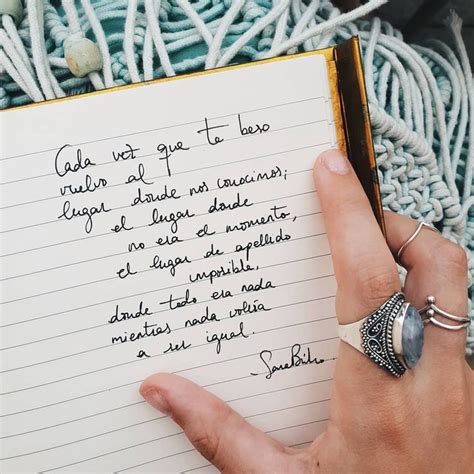 Cada vez que te beso
vuelvo al
lugar donde nos conocimos;
el lugar donde
no era el momento,
el lugar de apellido
imposible,
donde todo era nada
mientras nada volvía
a ser igual.